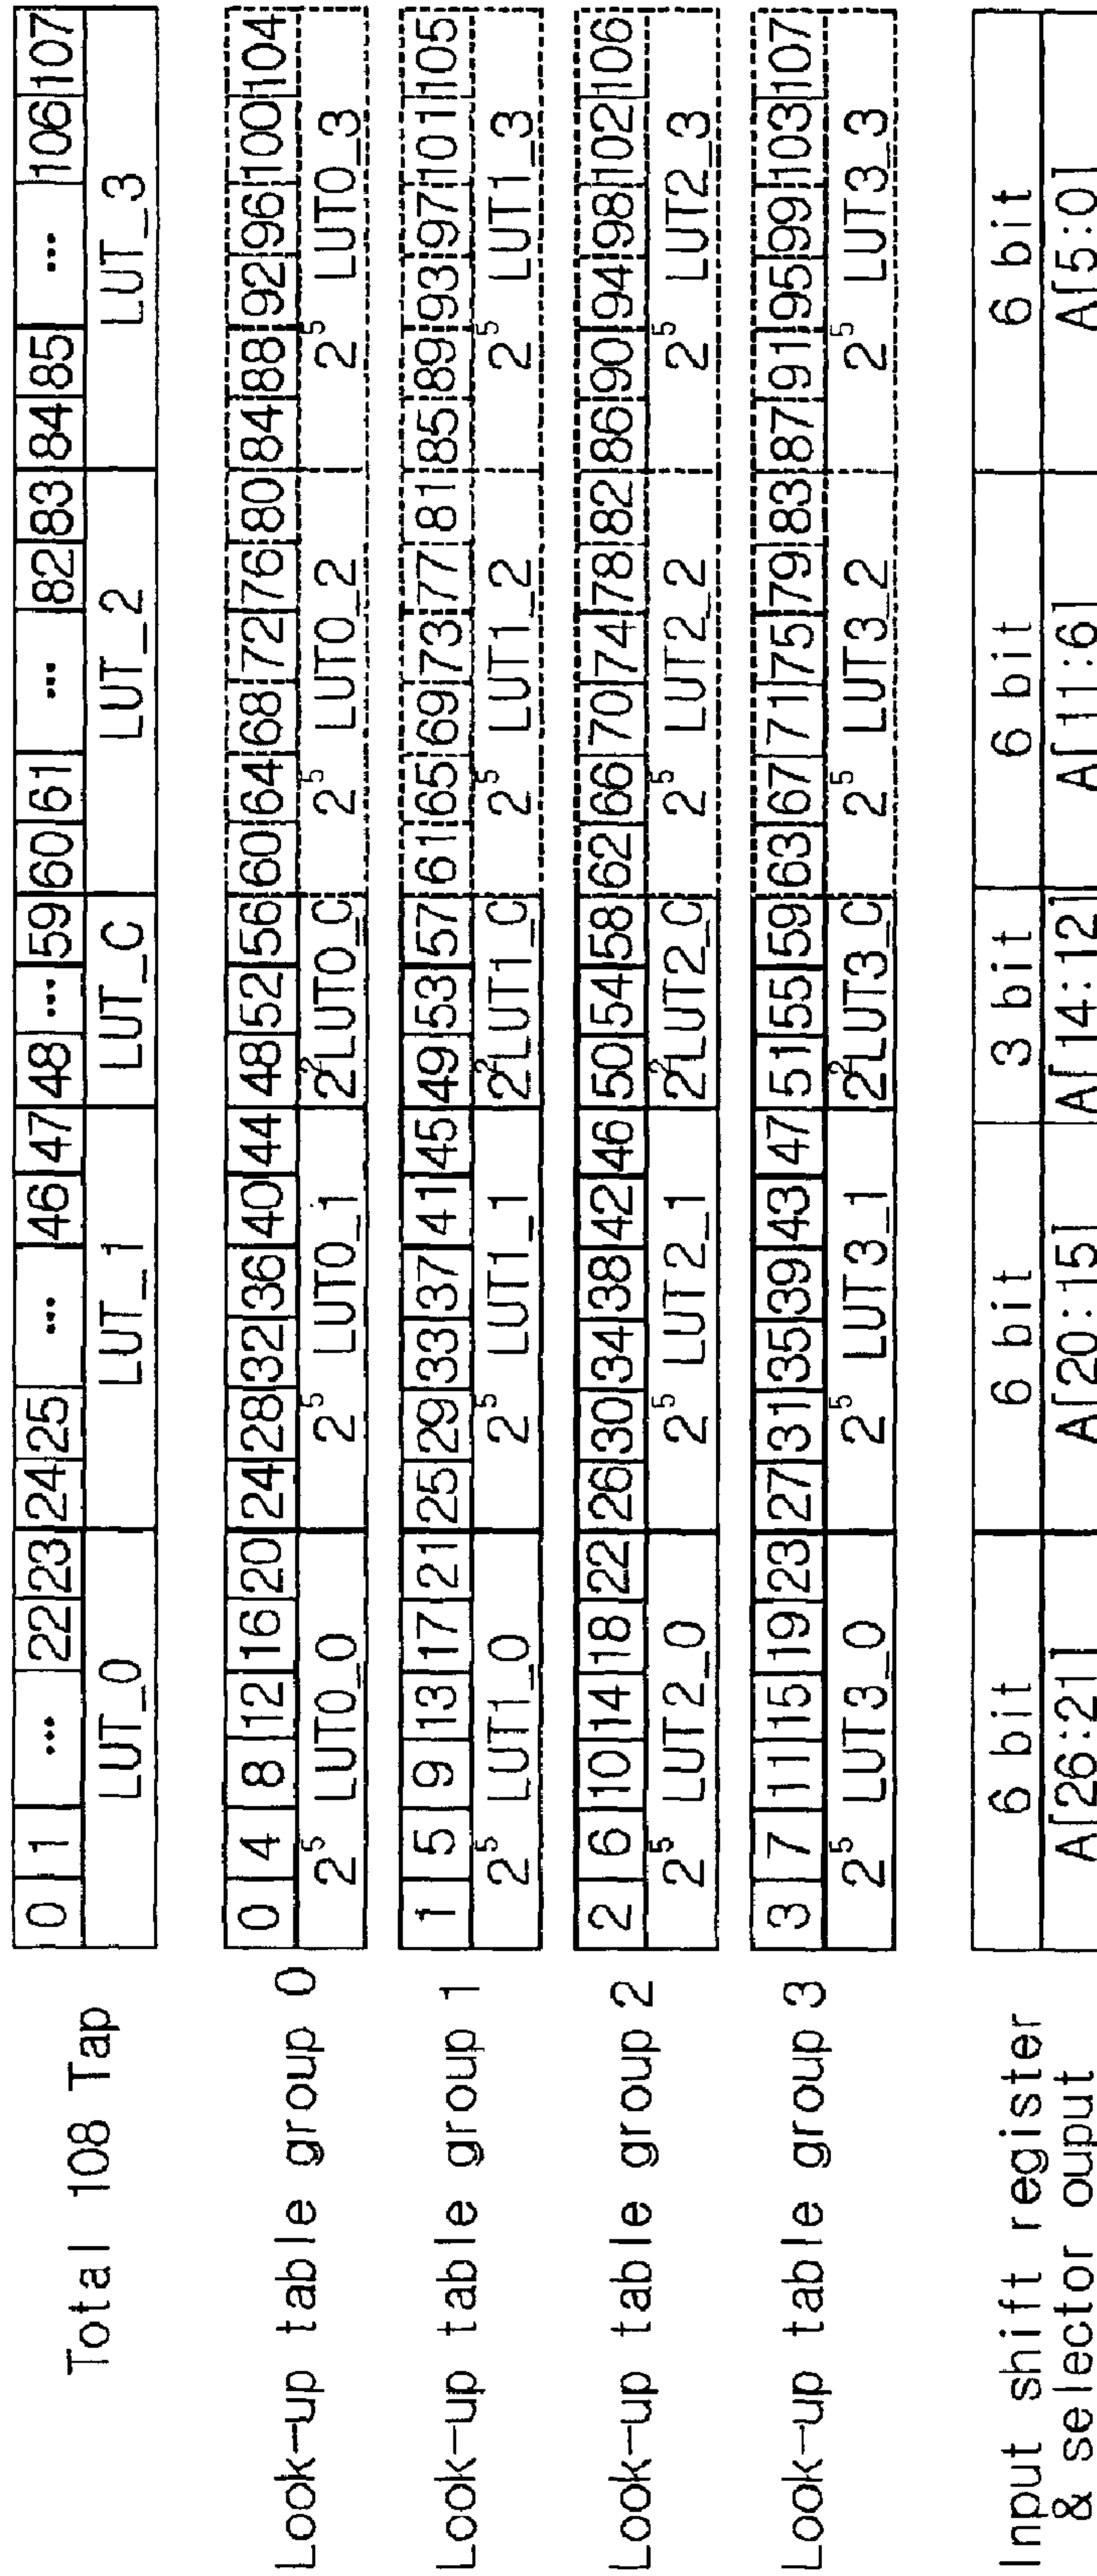 Total 108 Tap
0 1 ... 22 23 24 25 ... 46 47 48 ... 59 60 61 ... 82 83 84 85 ... 106 107
LUT_0 LUT_1 LUT_C LUT_2 LUT_3
Look-up table group 0
0 4 8 12 16 20 24 28 32 36 40 44 48 52 56 60 64 68 72 76 80 84 88 92 96 100 104
2^5 LUT0_0 2^5 LUT0_1 2^2 LUT0_C 2^5 LUT0_2 2^5 LUT0_3
Look-up table group 1
1 5 9 13 17 21 25 29 33 37 41 45 49 53 57 61 65 69 73 77 81 85 89 93 97 101 105
2^5 LUT1_0 2^5 LUT1_1 2^2 LUT1_C 2^5 LUT1_2 2^5 LUT1_3
Look-up table group 2
2 6 10 14 18 22 26 30 34 38 42 46 50 54 58 62 66 70 74 78 82 86 90 94 98 102 106
2^5 LUT2_0 2^5 LUT2_1 2^2 LUT2_C 2^5 LUT2_2 2^5 LUT2_3
Look-up table group 3
3 7 11 15 19 23 27 31 35 39 43 47 51 55 59 63 67 71 75 79 83 87 91 95 99 103 107
2^5 LUT3_0 2^5 LUT3_1 2^2 LUT3_C 2^5 LUT3_2 2^5 LUT3_3
Input shift register
& selector ouput
6 bit 6 bit 3 bit 6 bit 6 bit
A[26:21] A[20:15] A[14:12] A[11:6] A[5:0]